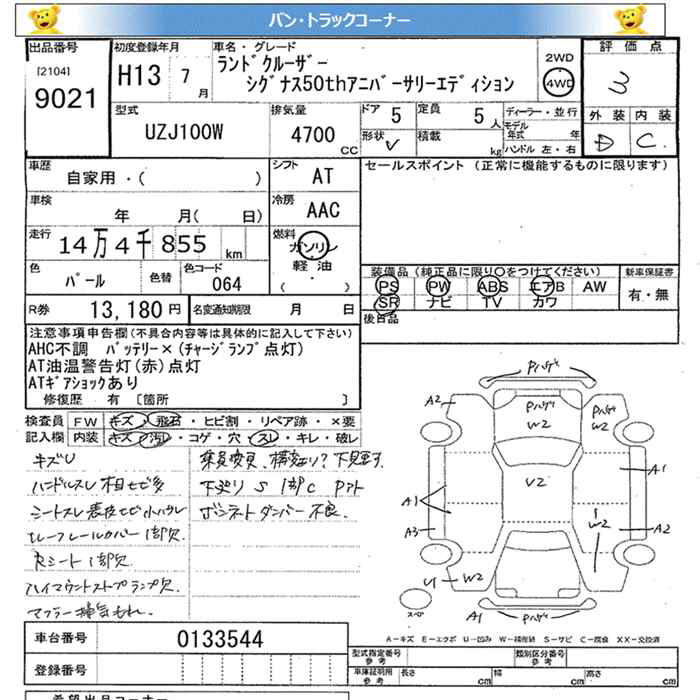 バン・トラックコーナー
出品番号 初度登録年月 車名・グレード 評価点
[2104]
9021
H13 7月
ランドクルーザー
シグナス50thアニバーサリーエディション
2WD
4WD
3
型式 排気量 ドア 定員 ディーラー・並行 外装 内装
UZJ100W 4700 CC 5 5人
モデル年式 年
形状 V 積載 kg ハンドル 左・右
D C
車歴 シフト セールスポイント (正常に機能するものに限ります)
自家用・( ) AT
車検 冷房
年 月( 日) AAC
走行 燃料
14万4千855 km ガソリン
軽油
( )
色 色替 色コード
パール 064
装備品(純正品に限り○をつけてください) 新車保証書
PS PW ABS エアB AW 有・無
SR ナビ TV カワ
R券 13,180円 名変通知期限 月 日
後日品
注意事項申告欄(不具合内容等は具体的に記入して下さい)
AHC不調 バッテリー×(チャージランプ点灯)
AT油温警告灯(赤)点灯
ATギアショックあり
修復歴 有 〔箇所 〕
検査員 FW キズ・飛石・ヒビ割・リペア跡・×要
記入欄 内装 キズ・汚れ・コゲ・穴・スレ・キレ・破レ
キズU
ハンドルスレ 相セビ多
シートスレ
レールカバー 1部欠
Rシート 1部欠
ハイマウントストップランプ欠
マフラー排気もれ
下廻り S 1部C Pアト
ボンネットダンパー不良
Pハゲ
A2
Pハゲ
W2
Pハゲ
W2
V2
A1
A1
A3
W2
A2
U1
W2
スペア
A1
Pハゲ
A-キズ E-エクボ U-凹み W-補修跡 S-サビ C-腐食 XX-交換済
車台番号 0133544
登録番号
型式指定番号 参考 類別区分番号 参考
車庫証明用 参考 長さ cm 幅 cm 高さ cm
希望出品コーナー